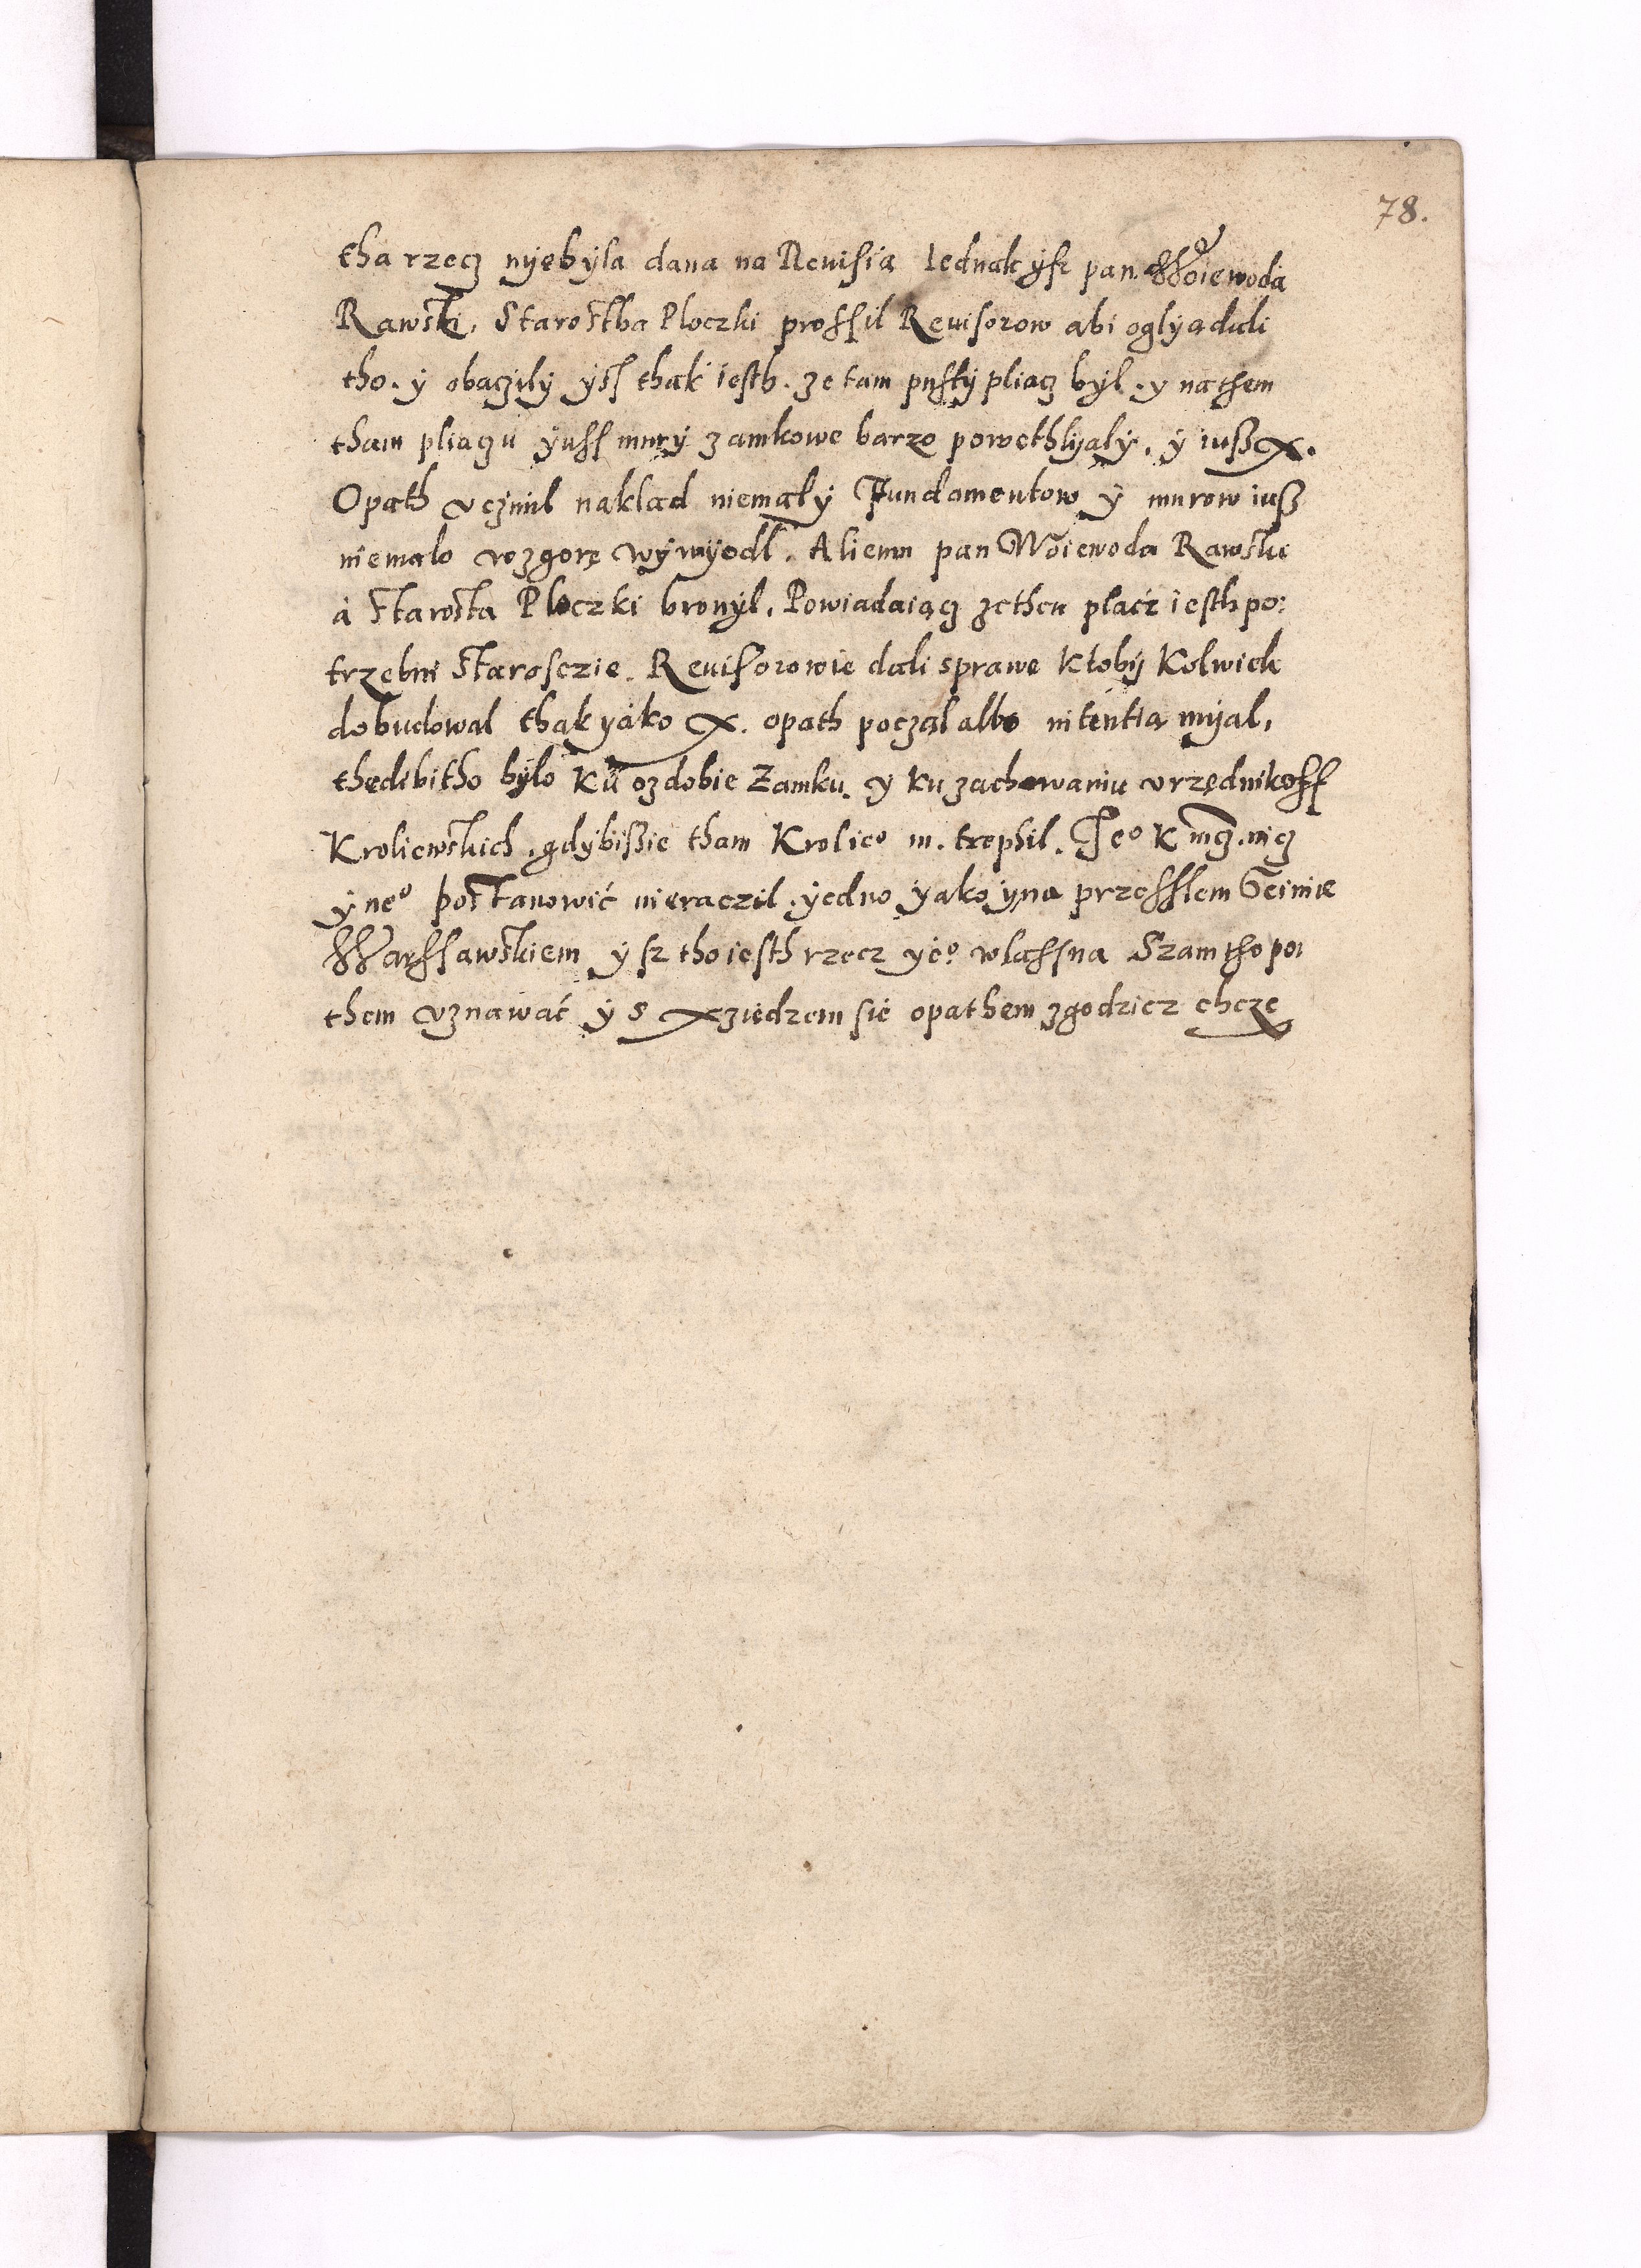 78.
tha rzecz nyebyla dana na Revisią Iednak ysz pan Woiewoda
Rawski, Starostha Ploczki prossil Revisorow abi oglyadali
tho. y obaczyly yss thak iesth. ze tam pusty pliacz byl. y na them
tham pliaczu yuss mury zamkowe barzo powethlyaly. y iusz x.
Opath vczinil naklad niemaly Fundamentow y murow iusz
niemalo wzgorę wywyodl. Aliemu pan Woiewoda Rawski
a starosta Ploczki bronyl. Powiadaiącz ze then placz iesth po:
trzebni Starosczie. Revisorowie dali sprawe Ktoby Kolwiek
dobudowal thak yako x. opath poczal albo intentia myal,
thedibitho bylo ku ozdobie Zamku. y ku zachowaniu vrzędnikoff
Kroliewskich. gdybissie tham Krolieo m. trephil. Jeo K mcz. nicz
yneo postanowić nieraczil. yedno yako yna przesslem Seimie
Warssawskiem ysz tho iesth rzecz yeo wlassna Szam tho po:
them vznawać y s xziędzem sie opathem zgodzicz chcze